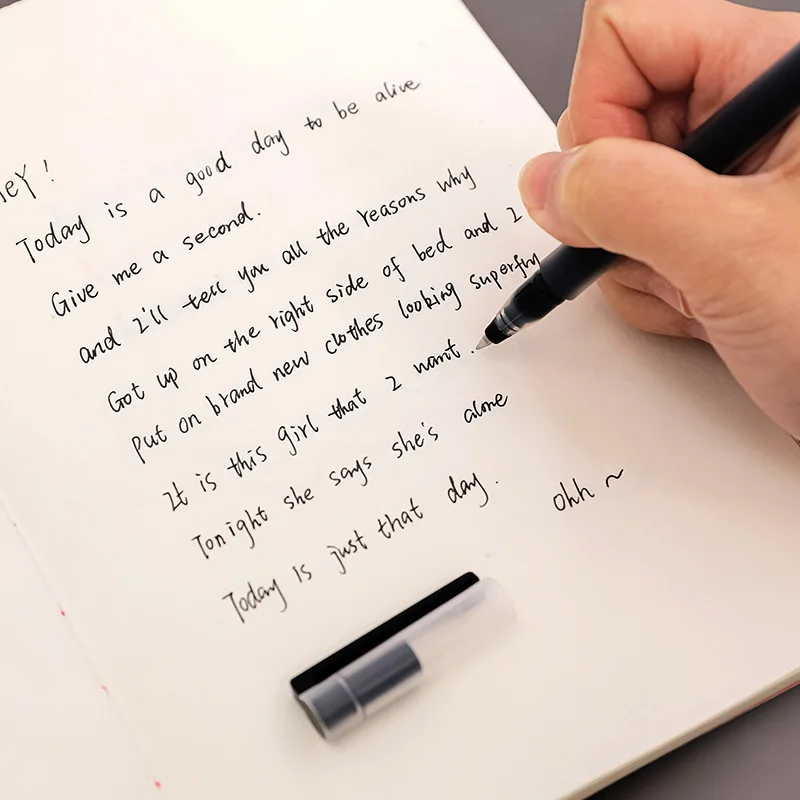 HeY!
Today is a good day to be alive
Give me a second.
and I'll tell you all the reasons why
Got up on the right side of bed and I
put on brand new clothes looking superfly
It is this girl that I want.
Tonight she says she's alone
Today is just that day. Ohh ~